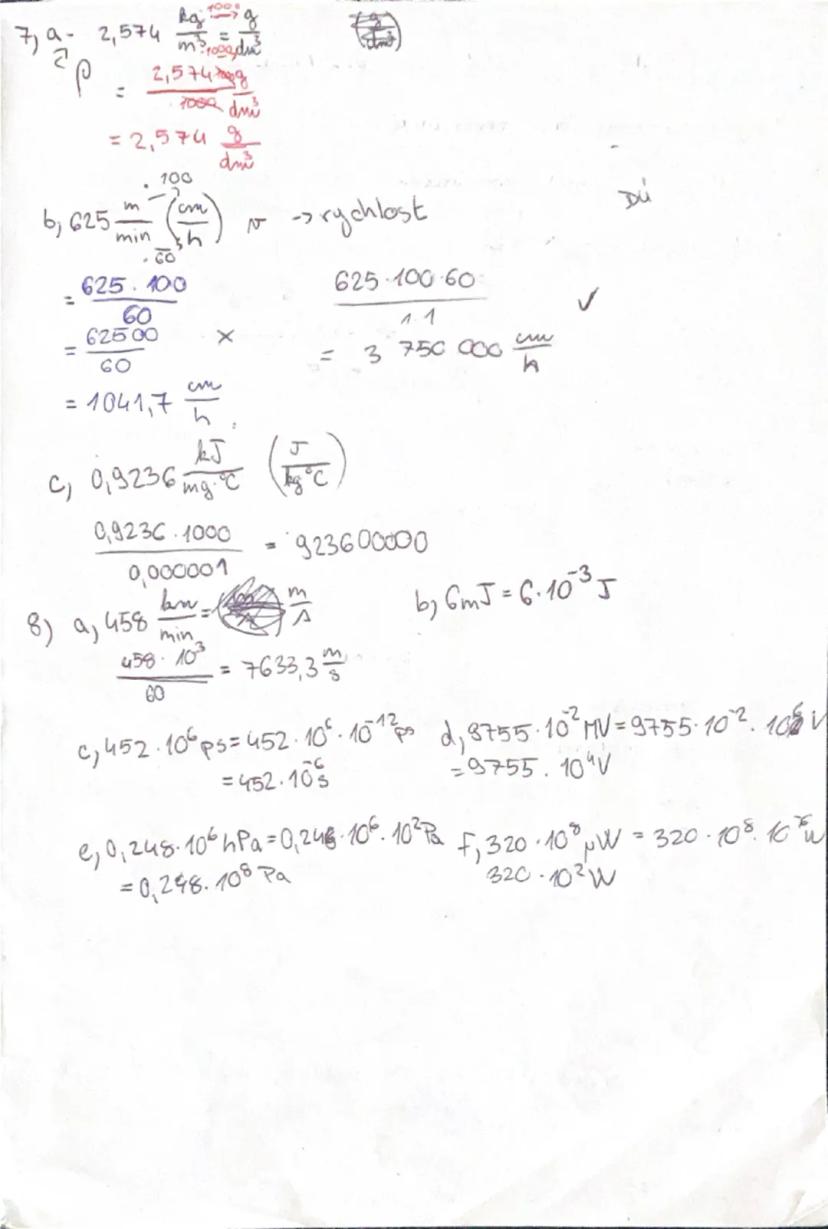 7, a - 2,574 kg/m³ = g/dm³
ρ = 2,574 g / dm³
= 2,574 g/dm³
. 100
b, 625 m/min (cm/h) v -> rychlost
. 60
DÚ
= 625 . 100 / 60
625 . 100 . 60 / 1.1 ✓
= 62500 / 60 ×
= 3 750 000 cm/h
= 1041,7 cm/h
c, 0,9236 kJ/mg.°C (J/kg°C)
0,9236 . 1000 / 0,000001 = 923600000
8) a, 458 km/min = m/s
b, 6mJ = 6.10⁻³ J
458 . 10³ / 60 = 7633,3 m/s
c, 452 . 10⁶ ps = 452 . 10⁶ . 10⁻¹² ps
= 452 . 10⁻⁶ s
d, 9755 . 10⁻² MV = 9755 . 10⁻² . 10⁶ V
= 9755 . 10⁴ V
e, 0,248 . 10⁶ hPa = 0,248 . 10⁶ . 10² Pa
= 0,248 . 10⁸ Pa
f, 320 . 10⁸ μW = 320 . 10⁸ . 10⁻⁶ W
320 . 10² W